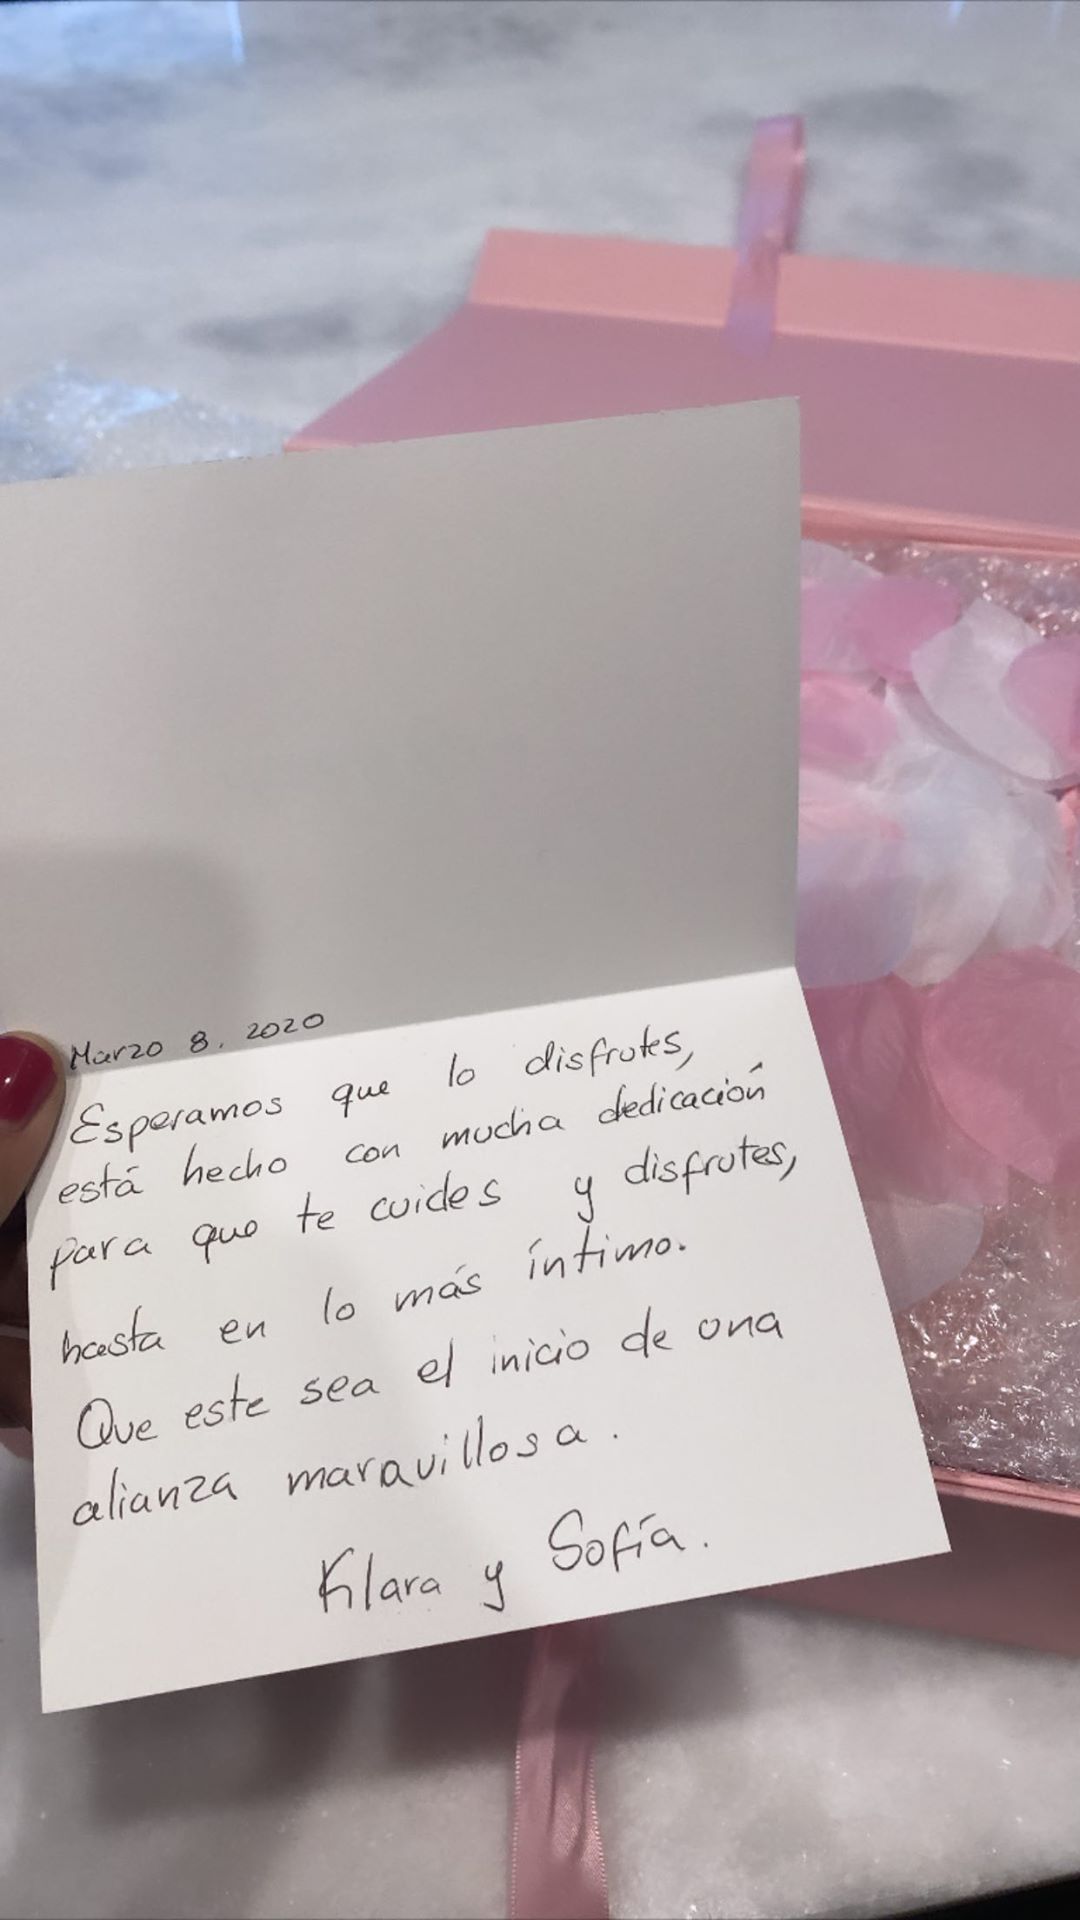 Marzo 8. 2020
Esperamos que lo disfrutes,
está hecho con mucha dedicación
para que te cuides y disfrutes,
hasta en lo más íntimo.
Que este sea el inicio de una
alianza maravillosa.
Klara y Sofía.